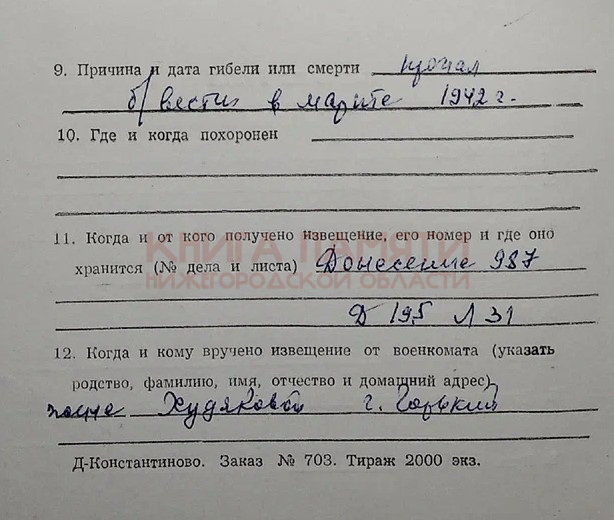 9. Причина и дата гибели или смерти пропал
б/вести в марте 1942 г.
10. Где и когда похоронен
КНИГА ПАМЯТИ
НИЖЕГОРОДСКОЙ ОБЛАСТИ
11. Когда и от кого получено извещение, его номер и где оно
хранится (№ дела и листа) Донесение 987
Д 195 Л 31
12. Когда и кому вручено извещение от военкомата (указать
родство, фамилию, имя, отчество и домашний адрес)
жене Худяковой г. Горький
Д-Константиново. Заказ № 703. Тираж 2000 экз.